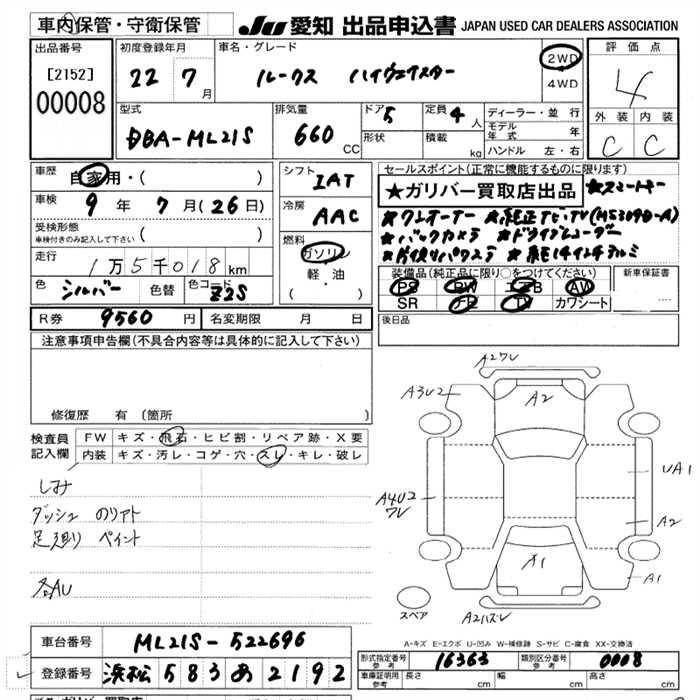 車内保管・守衛保管 JU 愛知 出品申込書 JAPAN USED CAR DEALERS ASSOCIATION
出品番号 [2152] 00008
初度登録年月 22 7月
車名・グレード ルークス ハイウェイスター
2WD 4WD
評価点 4
外装 C 内装 C
型式 DBA-ML21S
排気量 660 CC
ドア 5 形状
定員 4人 積載 kg
ディーラー・並行
モデル年式 年
ハンドル 左・右
車歴 自家用・( )
車検 9年 7月(26日)
受検形態 車検付きのみ記入して下さい ( )
走行 1万5千018km
色 シルバー 色替 色コード Z2S
シフト IAT
冷房 AAC
燃料 ガソリン 軽・油 ( )
セールスポイント(正常に機能するものに限ります)
★ガリバー買取店出品 ★スマートキー
★ワンオーナー ★純正ナビTV(MS309D-A)
★バックカメラ ★ドライブレコーダー
★片側パワスラ ★純14インチアルミ
装備品(純正品に限り○をつけてください) 新車保証書
PS PW エアB AW
SR TV カワシート
R券 9560円 名変期限 月 日
後日品
注意事項申告欄(不具合内容等は具体的に記入して下さい)
修復歴 有(箇所
検査員記入欄 FW キズ・飛石・ヒビ割・リペア跡・X要
内装 キズ・汚レ・コゲ・穴・スレ・キレ・破レ
しみ
ダッシュ のリアト
足廻り ペイント
各AU
A2ワレ
A3U2
A2
UA1
A4U2
ワレ
A2
A1
A1
スペア
A2ハズレ
A-キズ E-エクボ U-凹み W-補修跡 S-サビ C-腐食 XX-交換済
車台番号 ML21S-522696
登録番号 浜松 583 あ 2192
形式指定番号 参考 16363 類別区分番号 参考 0008
車庫証明用 参考 長さ cm 幅 cm 高さ cm